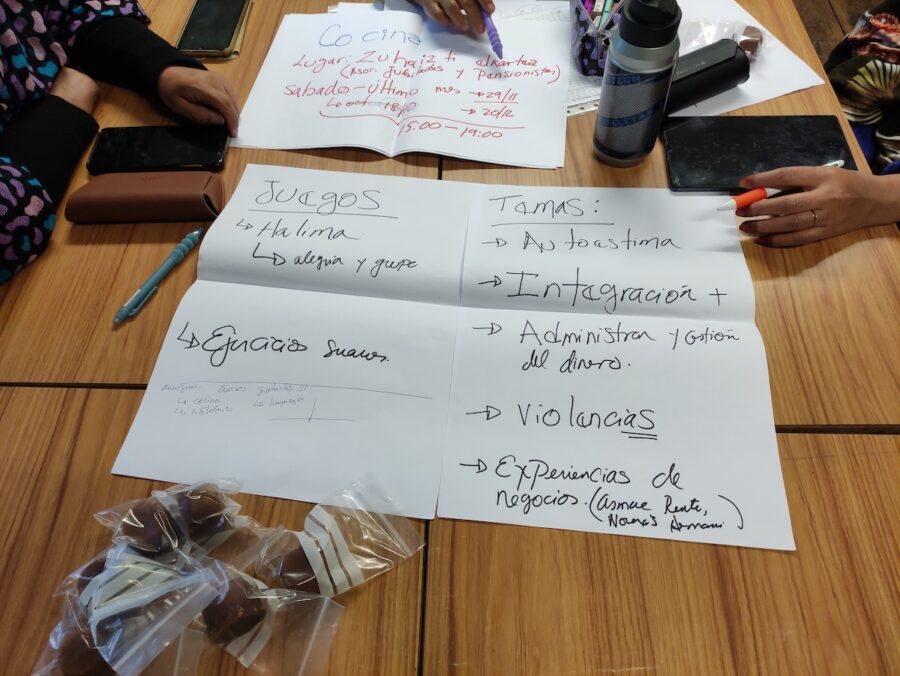 Cocina
Lugar: Zuhaizti elkartea
(Asoc. Jubiladas y Pensionistas)
sabado - último mes → 29/11
↳ oct 18/10 → 20/12
15:00 – 19:00
Juegos
↳ Halima
↳ alegria y grupo
↳ Ejercicios suaves.
cursos gratuitos
↳ cocina ↳ limpieza
Temas:
→ Autoestima
→ Integración +
→ Administrar y gestión
del dinero.
→ Violencias
→ Experiencias de
negocios. (Asmae Rente,